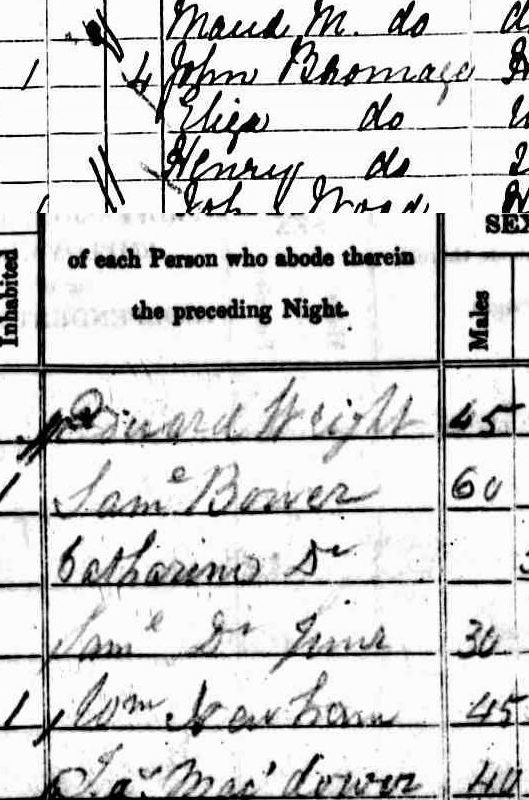 Maud M. do
1 4 John Bromage
Eliza do
Henry do
John Wood
SEX
Inhabited
of each Person who abode therein
the preceding Night.
Males
Edward Wright 45
1 Sam^e Bower 60
Catharine D^o
Sam^e D^o Junr 30
1 W^m Newham 45
Ja^s Mac'dower 40